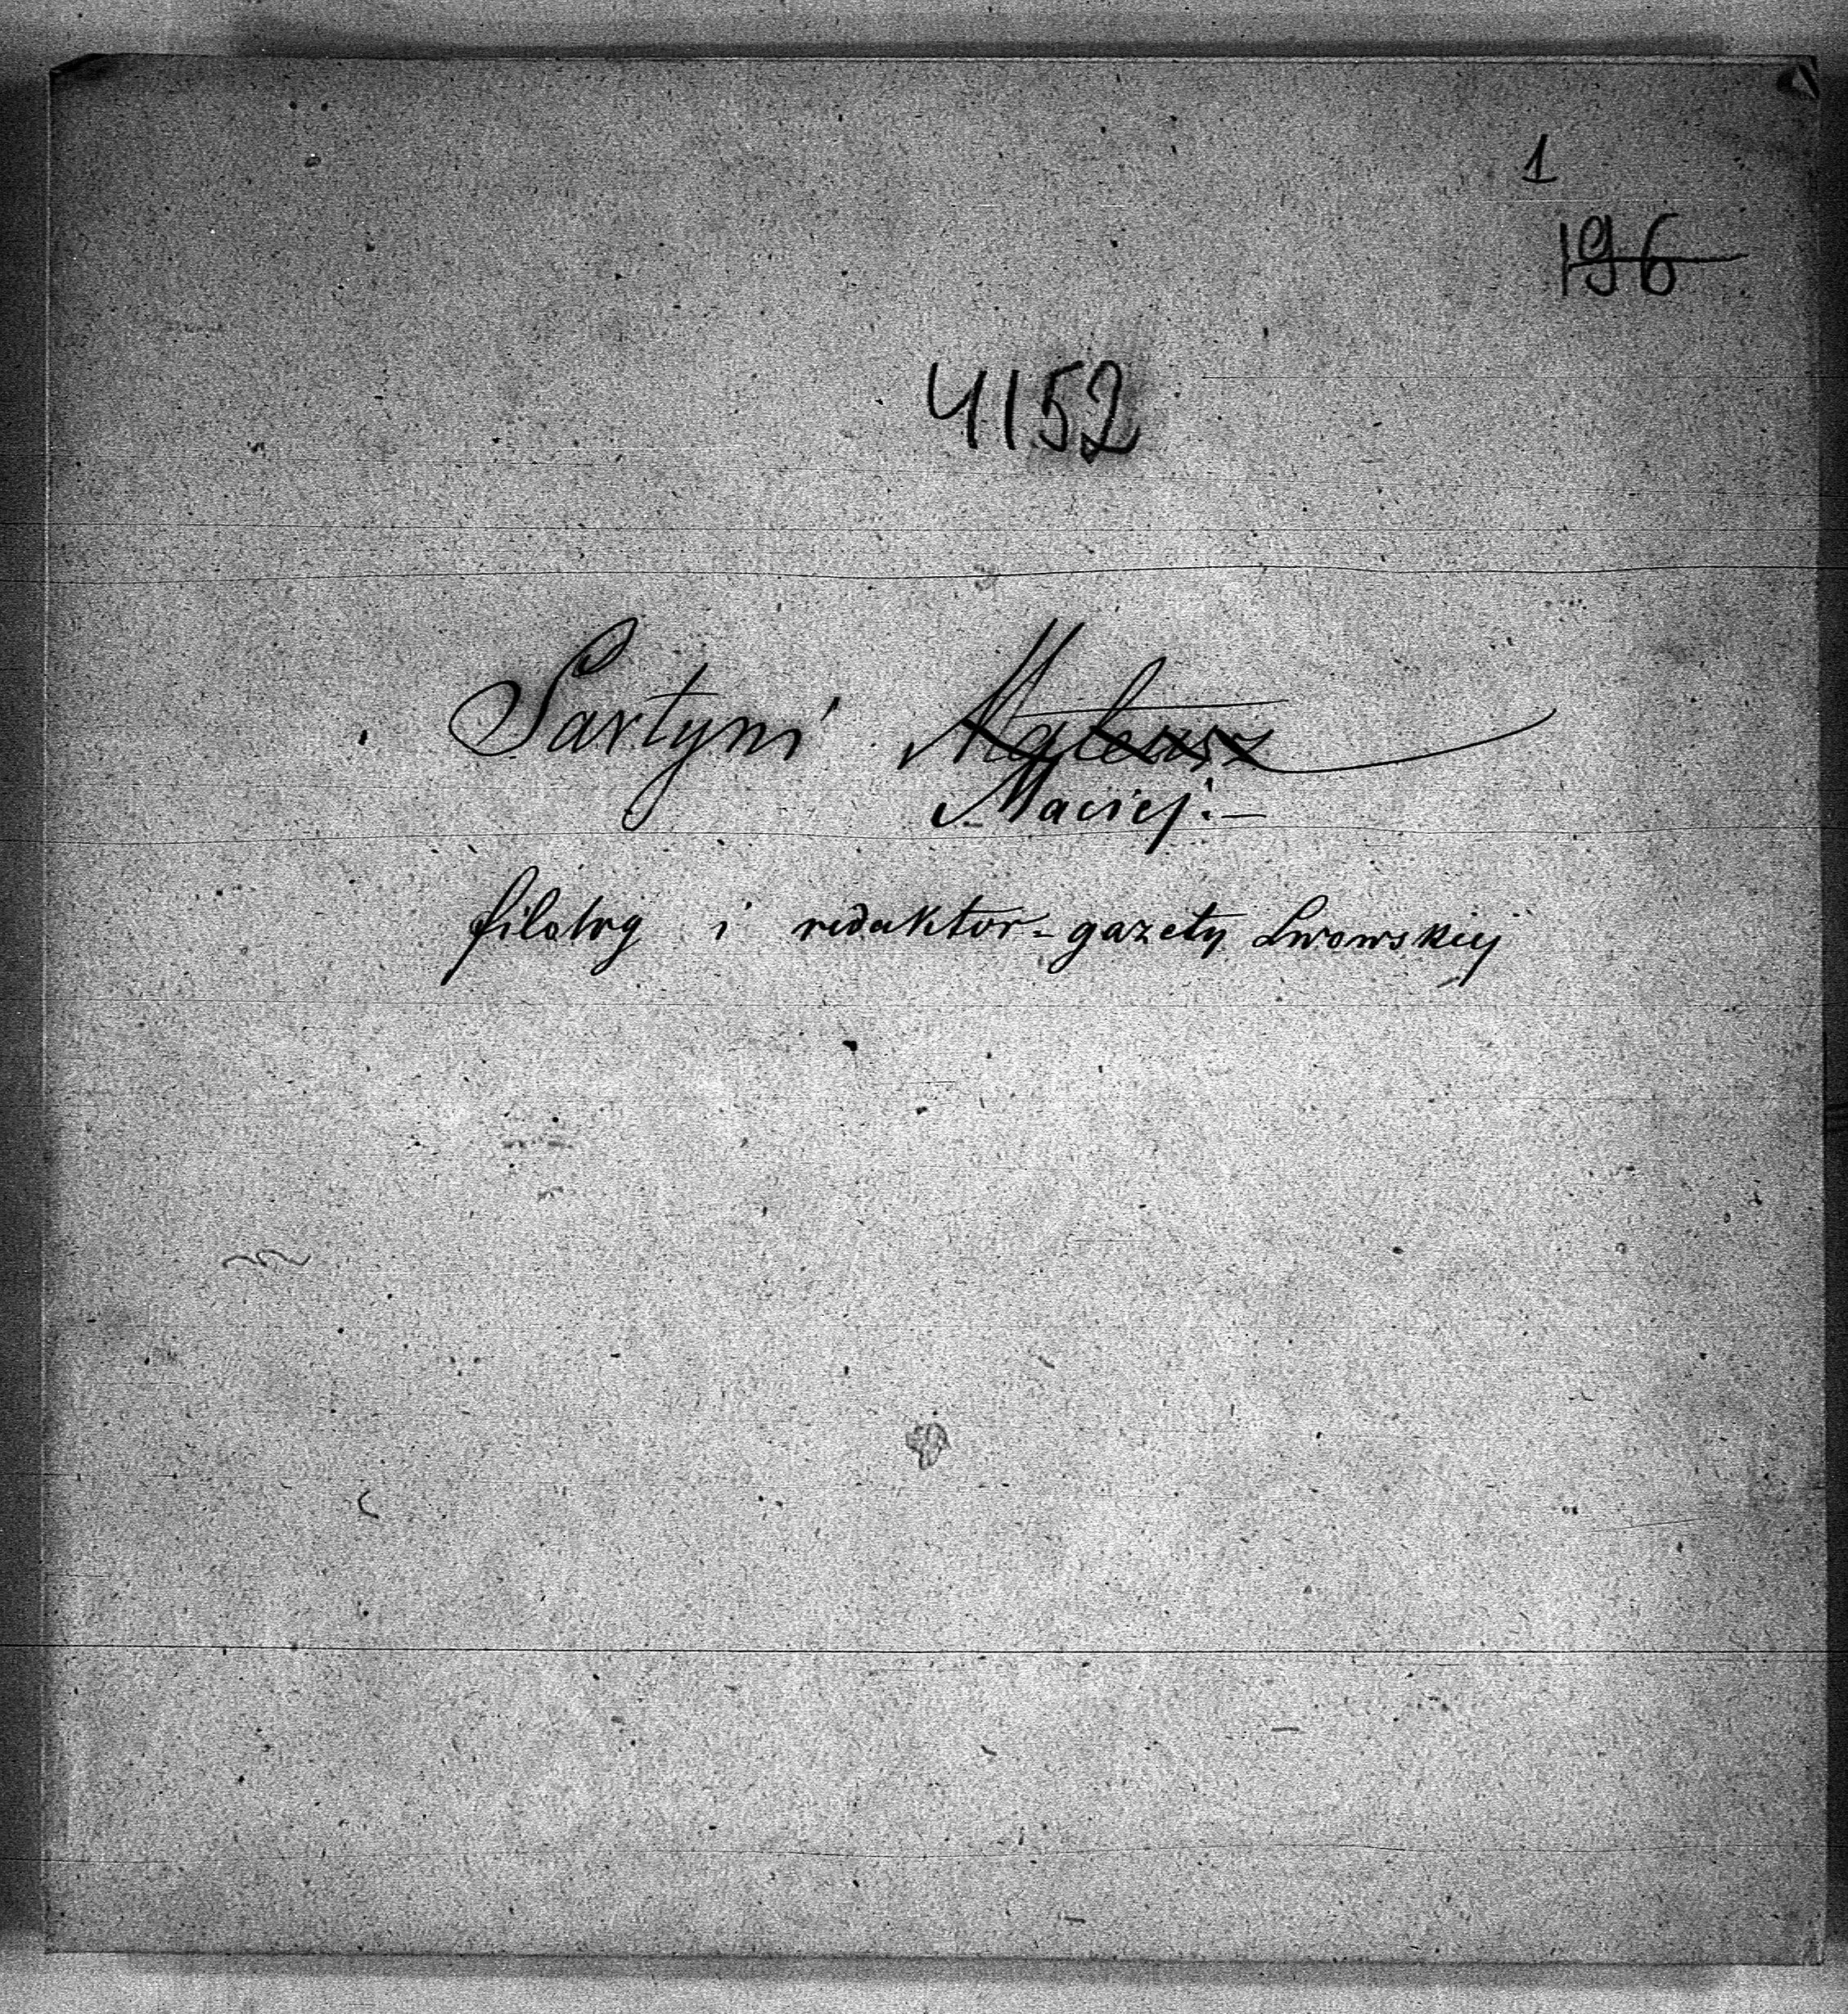 1
196
4152
Sartyni Mateusz
Maciej.—
filolog i redaktor - gazety Lwowskiej